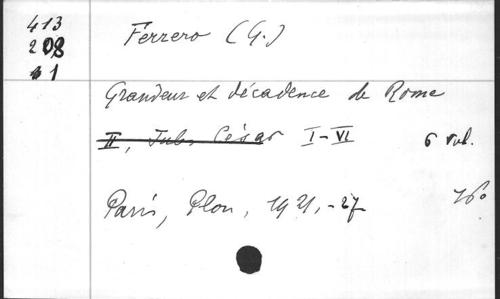 413
208
1
Ferrero (G.)
Grandeur et décadence de Rome
II, Jules César I-VI 6 vol.
Paris, Plon, 1921,-27 16°